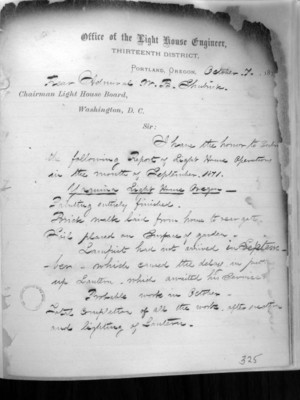 Office of the Light House Engineer,
THIRTEENTH DISTRICT,
PORTLAND, OREGON, October 7. 18
Rear Admiral W. B. Shubrick
Chairman Light House Board,
Washington, D. C.
Sir:
I have the honor to
the following Report of Light House Operations
in the month of September 1871.
Light House Oregon
Painting entirely finished.
Brick walk laid from house to
Soil placed on Surface of garden.
had not arrived in Septem-
ber - which caused the delay in
up Lantern. which awaited his Services
Probable work in October.
completion of all the work,
and lighting of
325